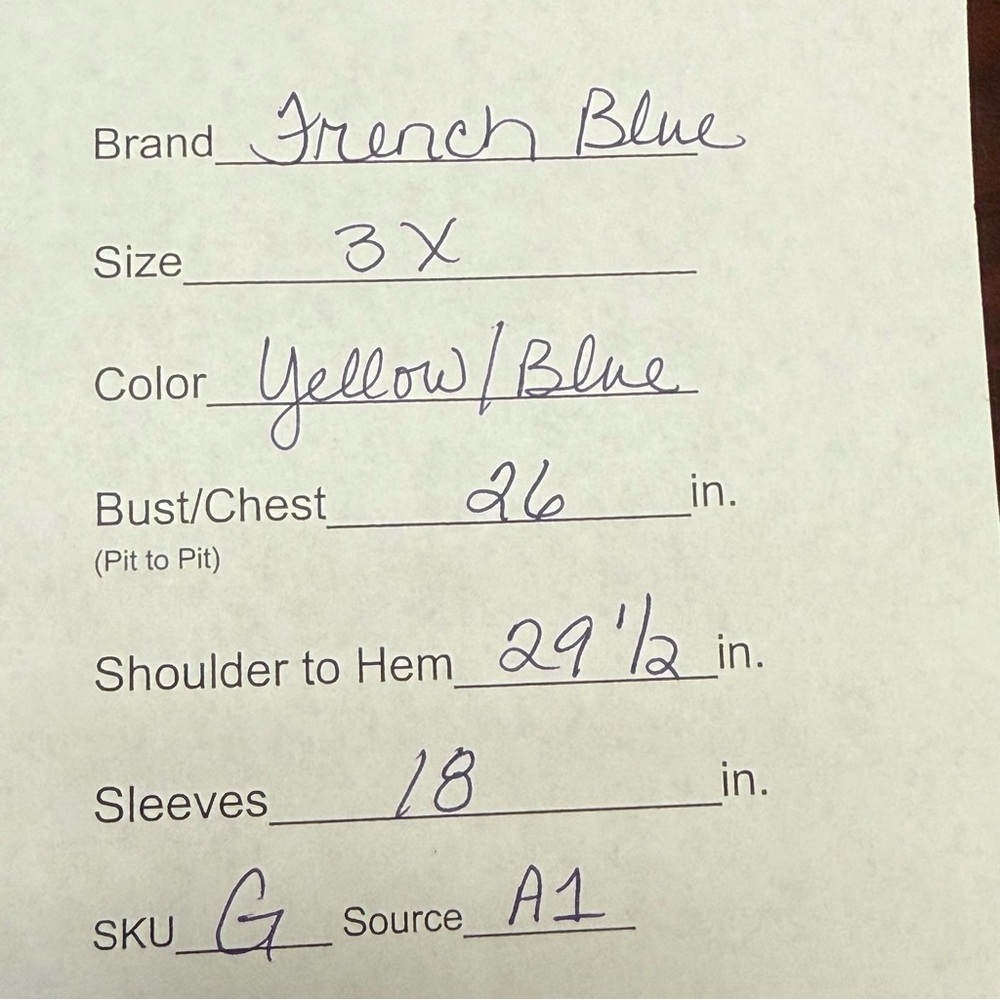 Brand French Blue
Size 3X
Color Yellow/Blue
Bust/Chest 26 in.
(Pit to Pit)
Shoulder to Hem 29 1/2 in.
Sleeves 18 in.
SKU G Source A1